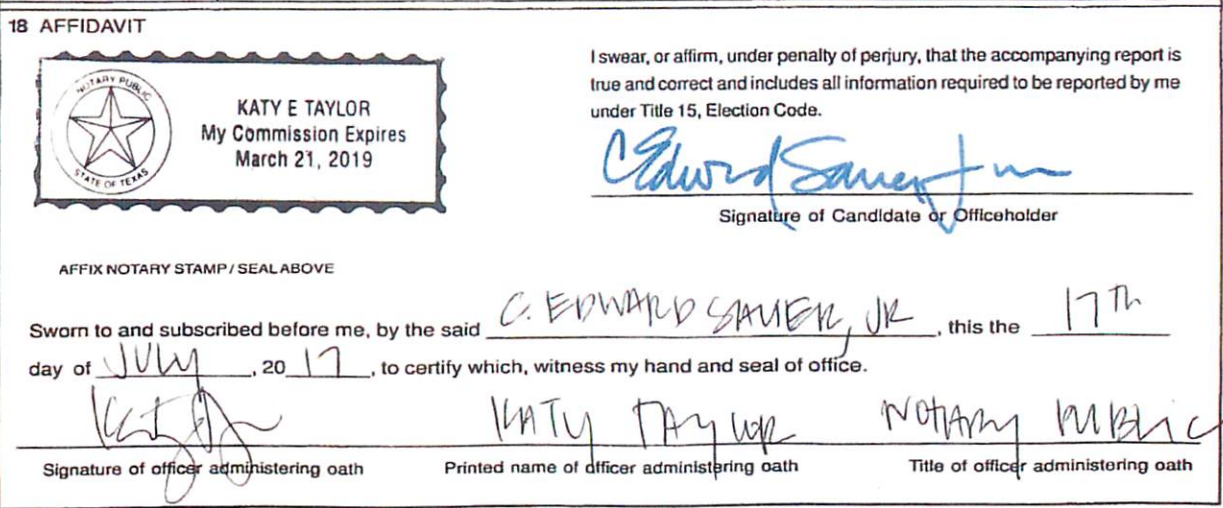 18 AFFIDAVIT
NOTARY PUBLIC
STATE OF TEXAS
KATY E TAYLOR
My Commission Expires
March 21, 2019
I swear, or affirm, under penalty of perjury, that the accompanying report is
true and correct and includes all information required to be reported by me
under Title 15, Election Code.
C Edward Sauer Jr
Signature of Candidate or Officeholder
AFFIX NOTARY STAMP / SEAL ABOVE
Sworn to and subscribed before me, by the said C. EDWARD SAUER, JR, this the 17th
day of JULY, 20 17, to certify which, witness my hand and seal of office.
KATY TAYLOR NOTARY PUBLIC
Signature of officer administering oath Printed name of officer administering oath Title of officer administering oath